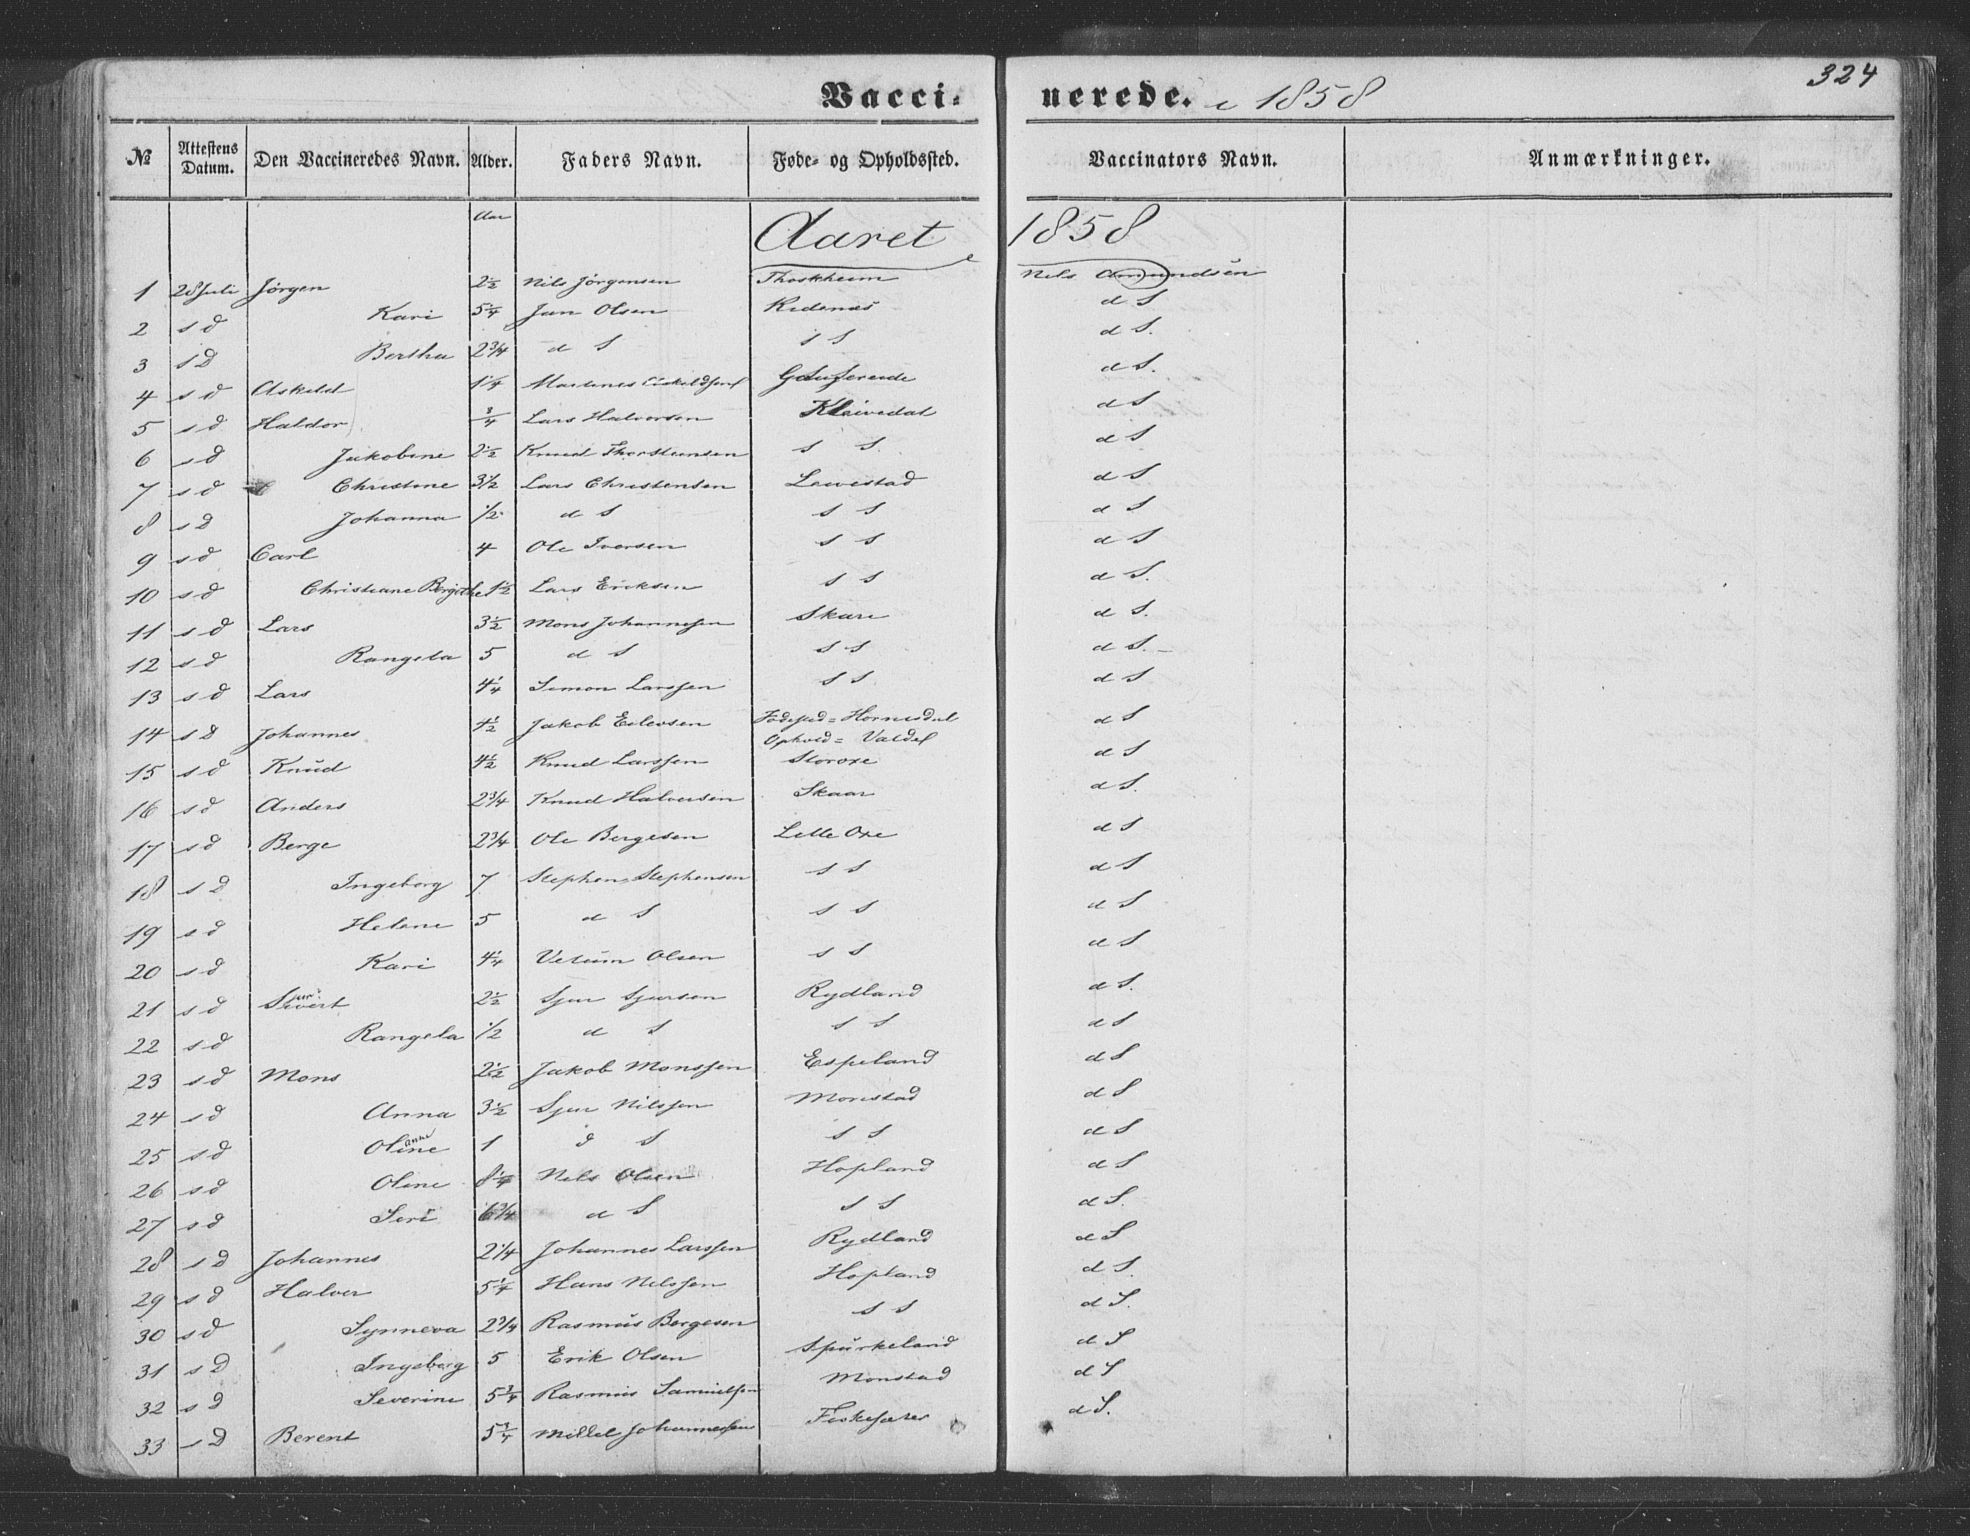 324
Vaccinerede. i 1858
№ Attestens Datum. Den Vaccineredes Navn. Alder. Faders Navn. Føde- og Opholdssted. Vaccinators Navn. Anmærkninger.
Aar
Aaret 1858
1 28 Juli Jörgen 2½ Nils Jörgensen Thoskheim Nils Amundsen
2 s d Kari 5¼ Jan Olsen Ridenæs d S
3 s D Bertha 2¾ d S s S d S.
4 s d Askeld 1¼ Martines d S.
5 s d Haldor ¾ Lars Halvorsen Kleivedal d S
6 s d Jakobine 2½ Knud Thorstensen s S d S
7 s d Christine 3½ Lars Christensen Leivestad d S
8 s D Johanna ½ d S s S d S
9 s d Carl 4 Ole Iversen s S d S
10 s d Christiane Birgithe 1½ Lars Eriksen s S d S.
11 s d Lars 3½ Mons Johannesen Skare d S.
12 s d Rangela 5 d S s S d S.
13 s d Lars 4¼ Simon Larssen s S d S
14 s d Johannes 4½ Jakob Eilevsen Födested = Hornisdal d S
Ophold = Valdel
15 s d Knud 4½ Knud Larssen Storoxe d S
16 s d Anders 2¾ Knud Halvorsen Skaar d S.
17 s d Berge 2¾ Ole Bergesen Lille Oxe d S
18 s D Ingeborg 7 Stephen Stephensen s S d S
19 s d Helene 5 d S s S d S
20 s d Kari 4¼ Olsen s S d S
21 s d Sivert 2½ Sjur Sjursen Rydland d S.
22 s d Rangela ½ d S s S d S
23 s d Mons 2½ Jakob Monssen Espeland d S
24 s d Anna 3½ Sjur Nilssen Monstad d S
25 s d Oline 1 d S s S d S
26 s d Oline 8¼ Nils Olsen Hopland d S
27 s d Siri 6¾ d S s S d S.
28 s D Johannes 2¼ Johannes Larssen Rydland d S
29 s d Halver 5¼ Hans Nilssen Hopland d S.
30 s d Synneva 2¾ Rasmus Bergesen s S d S.
31 s D Ingeborg 5 Erik Olsen Spurkeland d S
32 s D Severine 5¾ Rasmus Samuelsen Monstad d S
33 s D Berent 5¾ Mikkel Johannessen d S.